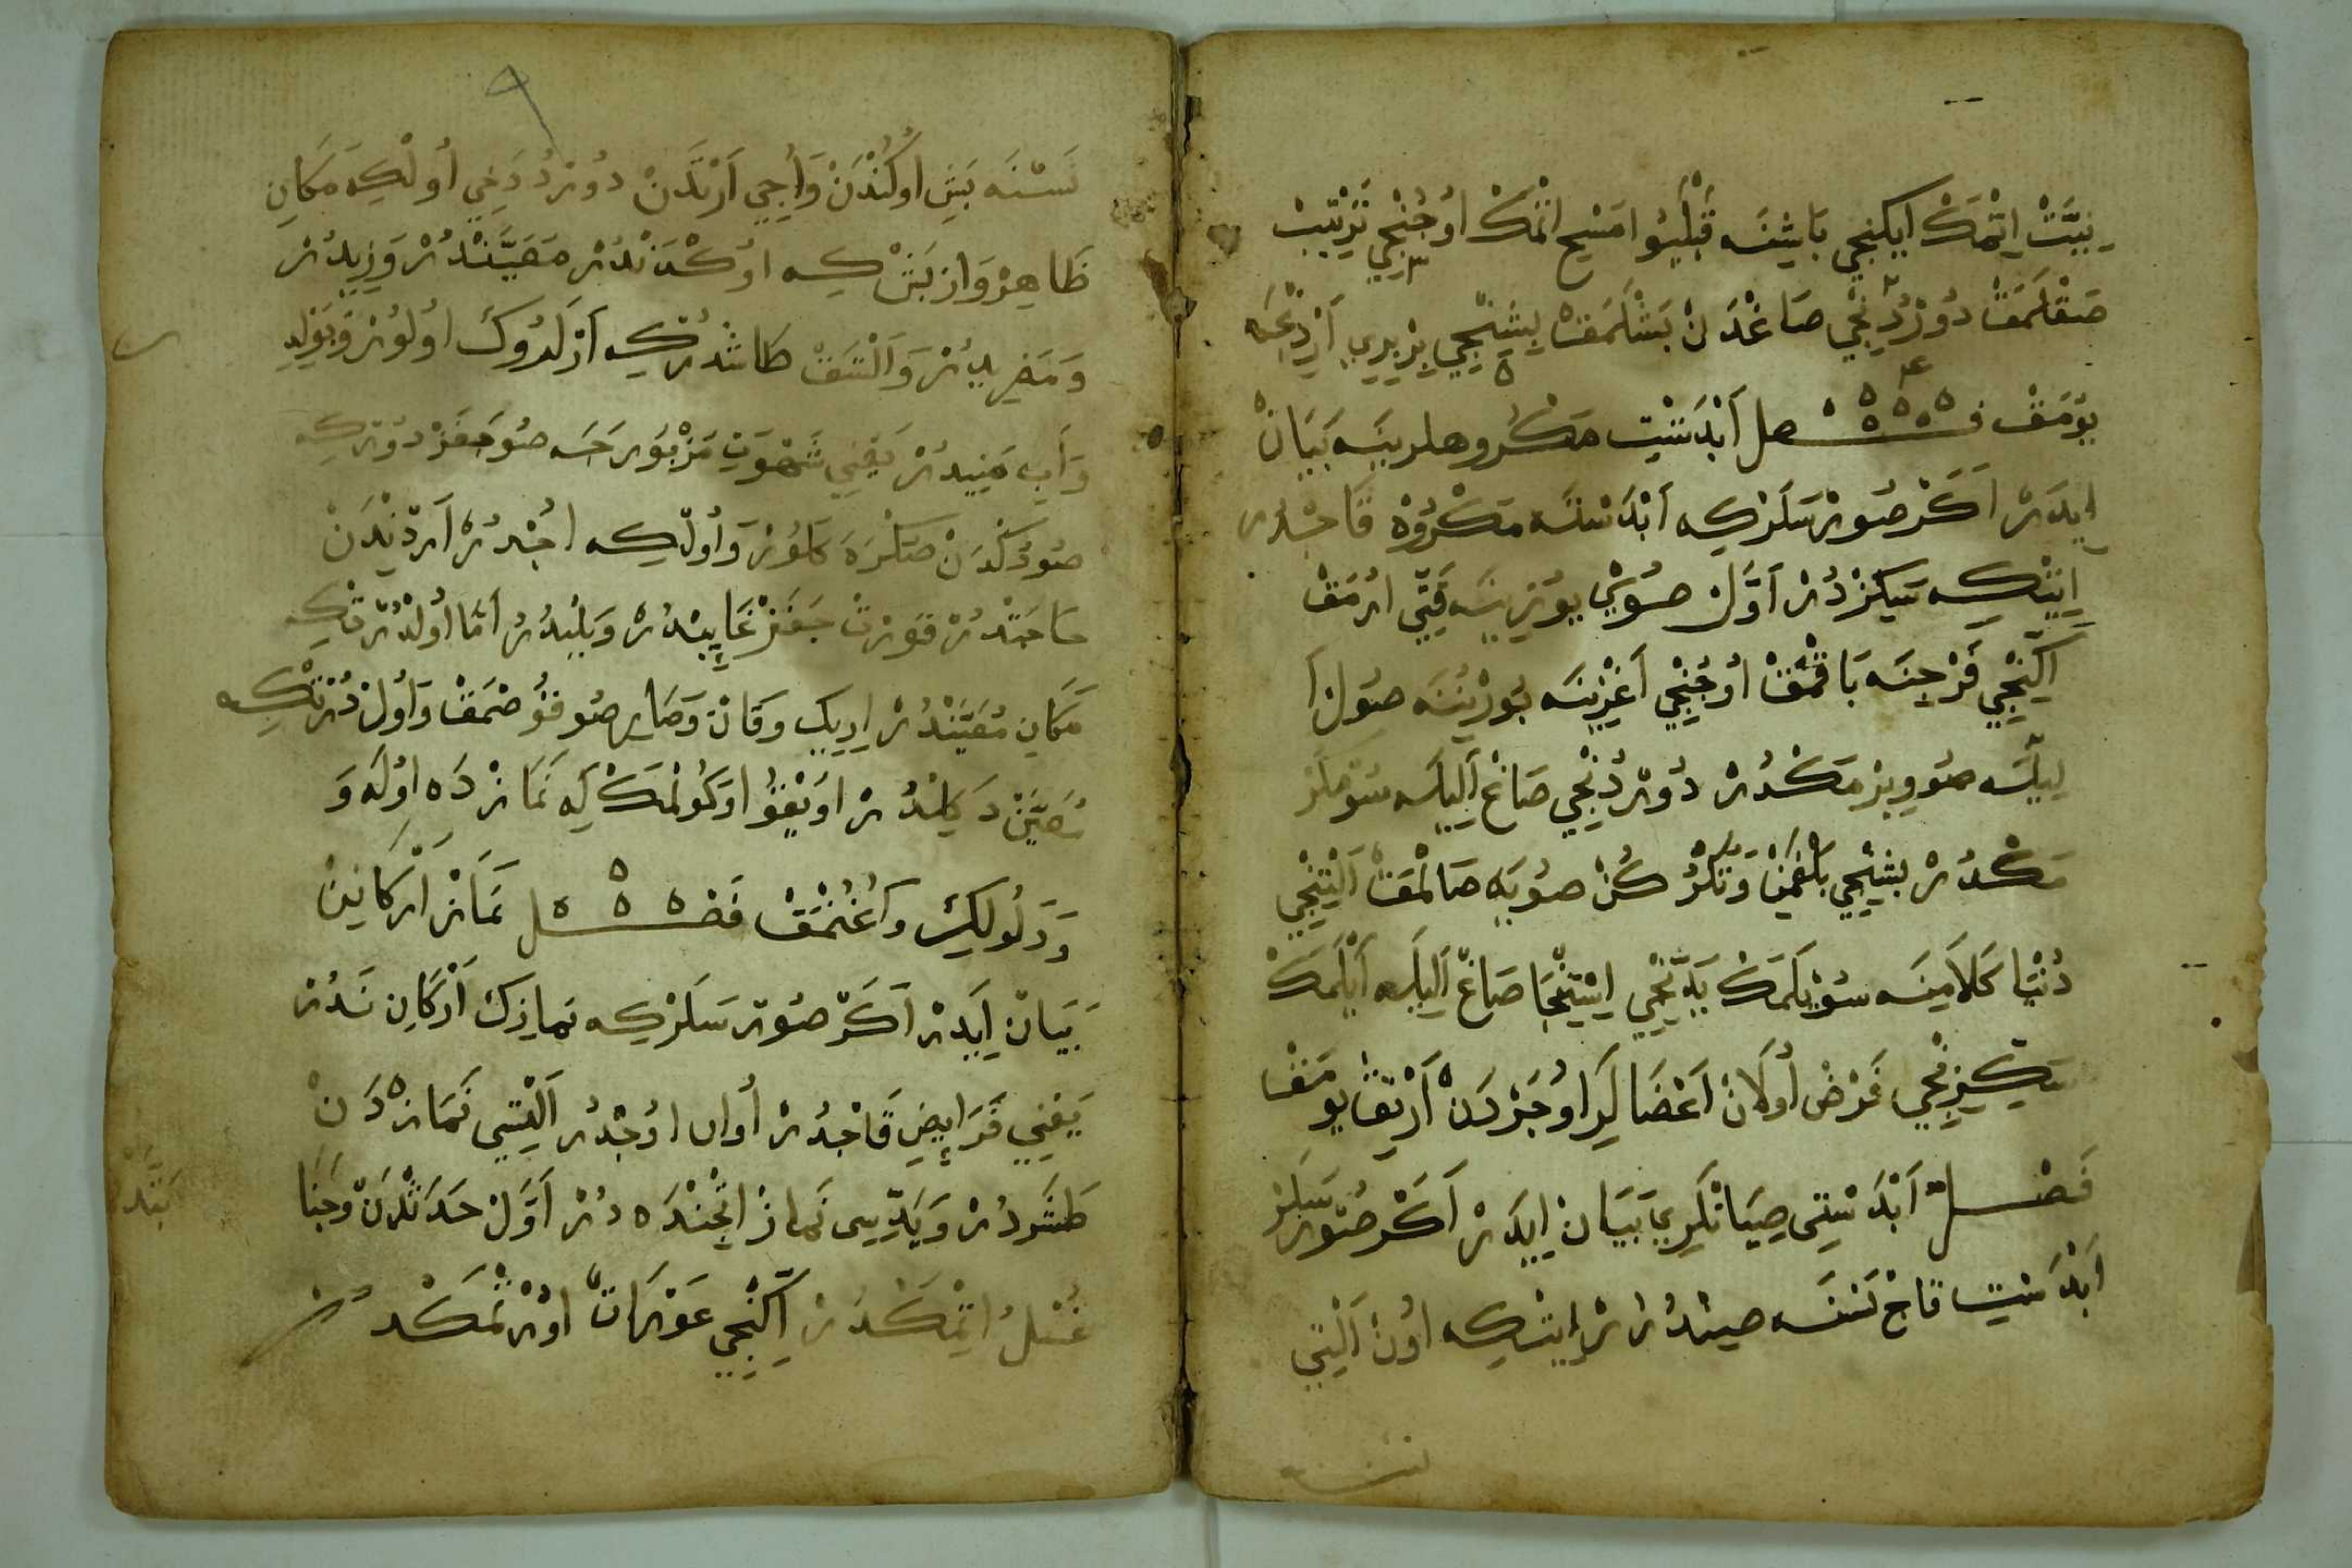 نِيَّتْ اِتْمَكْ ايكنجي بَاشِنَه قَبْلَيُو مَسْح اتْمَكْ اوُجُنْجِي تَرْتِيبْ
صَقْلَمَقْ دُوْرْدُنْجِي صَاغْدَنْ بَشْلَمَقْ بِشِنْجِي بِرْ بِرِي اَرْدِنْجَه
يُوْمَقْ فصل اَبْدَسْتِتْ مَكْرُوهلرينَه بَيَانْ
اِيدَرْ اَكَرْ صُوْرْسَلَرْكِه اَبْدَسْتَه مَكْرُوْه قَاجْدُر
اِيتْكِه سَكِزْدُرْ اَوَّلْ صُوْيِي يُوْزِينَه قَتِي اُرْمَقْ
اَكِنْجِي فَرْجِنَه بَاقْمَقْ اوُجُنْجِي اَغْزِينَه بُورْنِنَه صُوْل اَ
لِيلَه صُو وِيرْمَكْدُرْ دُوْرْدُنْجِي صَاغْ اَلِيلَه سُوْمْكُرْ
مَكْدُرْ بِشِنْجِي بَلْغَمِنْ وَتُكْرُكُنْ صُويَه صَالْمَقْ اَلْتِنْجِي
دُنْيَا كَلاَمِنَه سُوْيْلَمَكْ يَدِّنْجِي اِسْتِنْجَا صَاغْ اَلِيلَه اَيْلَمَكْ
سَكِّزِنْجِي فَرْض اُولاَنْ اَعْضَالَرِ اوُجَرْدَنْ اَرْتِقْ يُومَقْ
فَصْل اَبْدَسْتِي صِيَانْلَرِي بَيَانْ اِيدَرْ اَكَرْ صُوْرْسَلَرْ
اَبْدَسْتِتْ قَاجْ نَسْنَه صِينْدُرُرْ اِيتْكِه اوُنْ اَلْتِي
نسنه
نَسْنَه بَشِ اوُكُنْدَنْ وَاُجِي اَرْتِنْدَنْ دُوْرْدُ دَخِي اُولْكِه مَكَانِ
ظَاهِرْ وَارْ بَشْ كِه اوُكُنْدَنْدُرْ مُعَيَّنْدُرْ وَزِيدُرْ
وَمَذِيدُرْ وَالْتِنَقْ طَاشْدُرْكِه اَزْلَدُوكْ اُولُوْرْ وَبَوْلِدِ
وَاَبِ مَنِيدُرْ يَعْنِي شَهْوَتِ مَزْبُوره جَه صُو جِقَرْ دُوْرْكِه
صُودُكْدَنْ صَكْرَه كَلُوْرْ وَاُولْكِه اُجْدُرْ اَرْدِنْدَنْ
حَاجَتْدُرْ قُوْرْتْ جِقَرْ غَايِبْدُرْ وَيَلِيدُرْ اَمَّا اُولْدُرْتْكِه
مَكَانِ مُعَيَّنْدُرْ اِرِيكْ وَقَانْ وَصَارِ صُو قُوْصْمَقْ وَاُوْل دُرْتْكِه
مُعَيَّنْ دَكِلْدُرْ اوُيْقُو اوُكُوْلْمَكْلَه نَمَازْدَه اوُلَه وَ
وَدَلُولِكْ وَاُغُنْمَقْ فَصْل نَمَازْ اَرْكَانِينْ
بَيَانْ اِيَدِرْ اَكَرْ صُوْرْسَلَرْكِه نَمازِكْ اَرْكَانِ نَدُرْ
يَعْنِي فَرَايِضِ قَاجْدُرْ اُوان اوُجْدُرْ اَلْتِسِي نَمَازْدَنْ
طَشَرِدُرْ وَيَدِّيسِى نَمازْ اِچِنْدَه دُرْ اَوَّلْ حَدَثْدَنْ وَجَنَا
بَتْدَنْ
غُسْلْ اِتْمَكْدُرْ اَكِّنْجِي عَوْرَاتْ اوُرْتْمَكْدُرْ